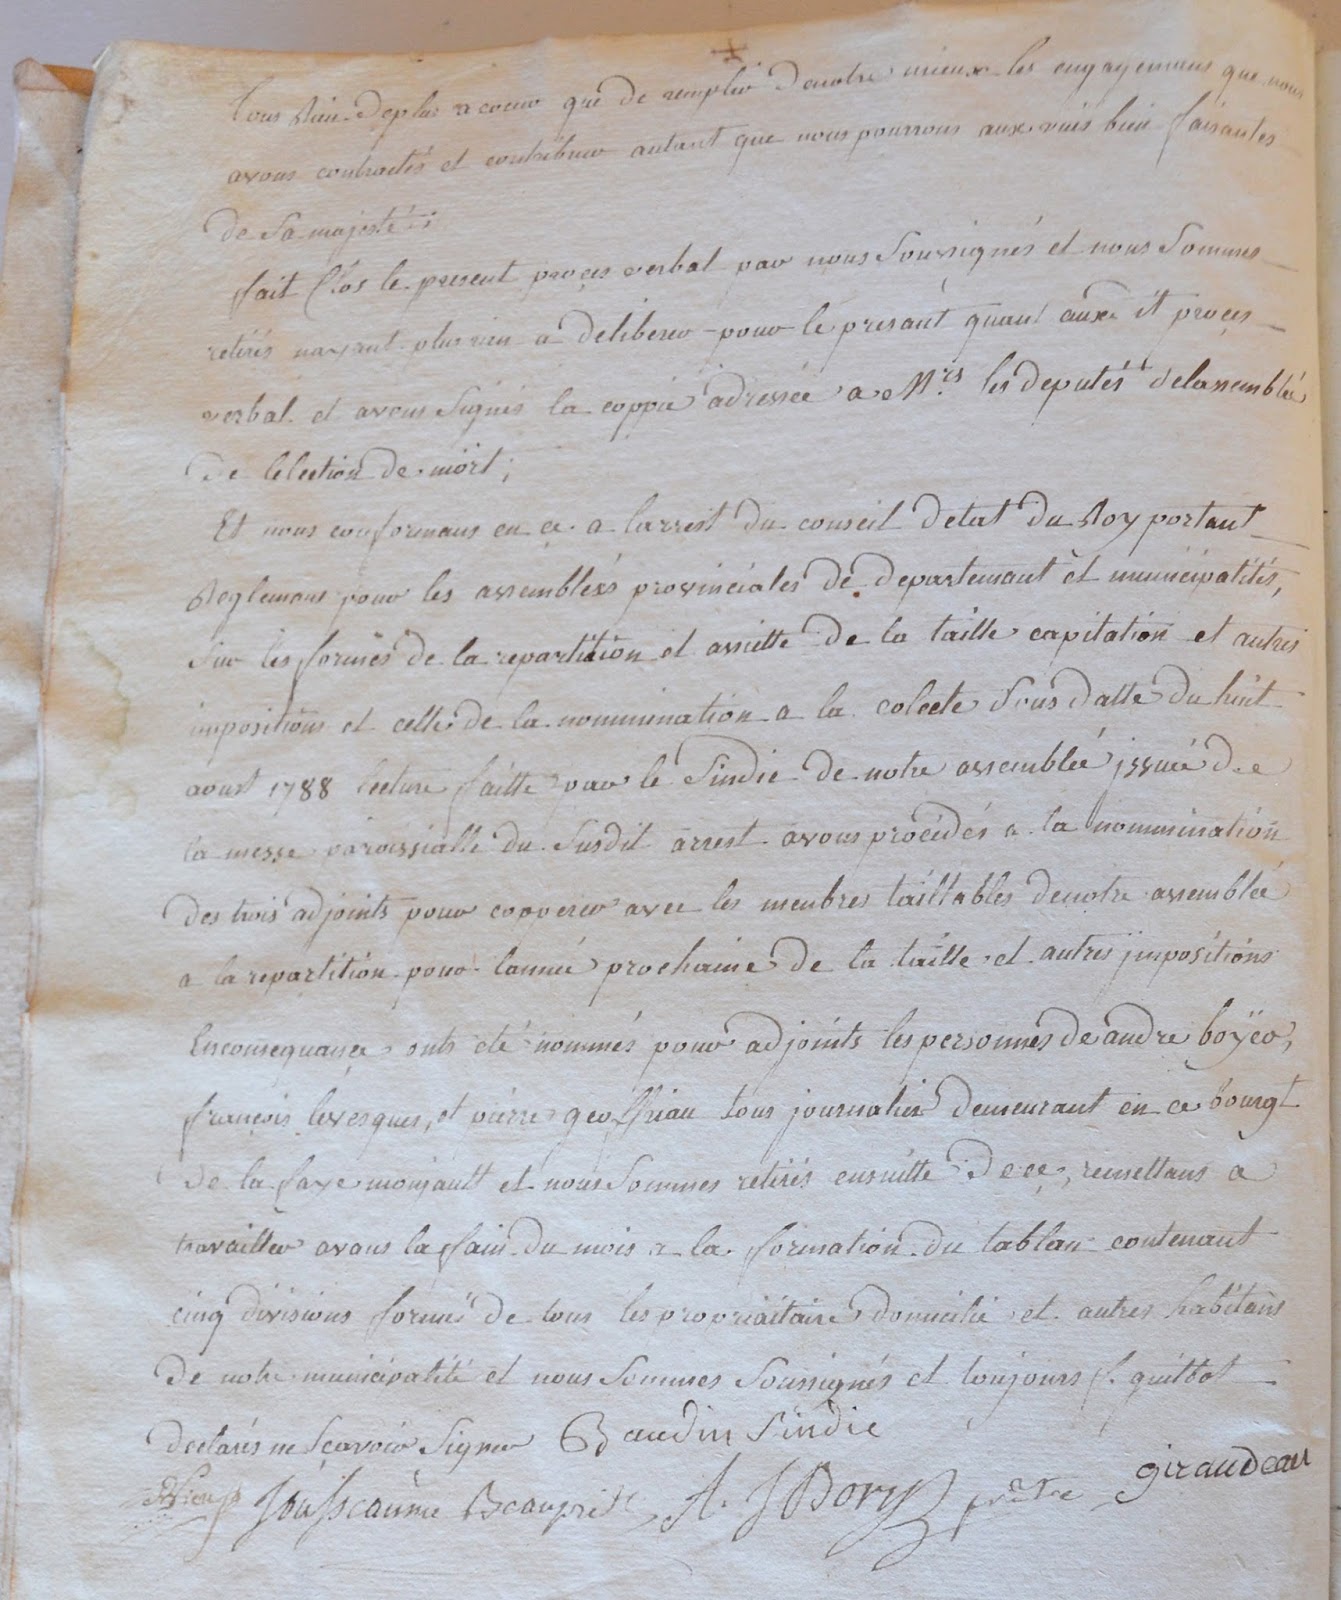 tous Rien deplus a coeur que de remplir denotre mieux les engagemens que nous
avons contractés et contribuer autant que nous pourrons aux vuis bien faisantes
de Sa majesté ;
fait Clos le present proces verbal par nous Soussignés et nous Sommes
retirés nayant plus rien a deliberer pour le presant quant aux dit proces
verbal et avons Signés la coppie adressée a Mrs. les deputés delassemblée
de lelection de niort ;
Et nous conformans en ce a larrest du conseil detat du Roy portant
Reglemens pour les assemblées provinciales de departemant et municipalités,
Sur les formes de la repartition et assiette de la taille capitation et autres
impositions et celle de la nommination a la colecte Sous datte du huit
aoust 1788 lecture faitte par le Sindic de notre assemblée issuée de
la messe paroissialle du Susdit arrest avons procédés a la nommination
des trois adjoints pour coopperer avec les menbres taillables denotre assemblée
a la repartition pour lannée prochaine de la taille et autres impositions
Enconsequance onts été nommés pour adjoints les personnes de andre boÿer,
françois levesques, et pierre geoffriau tous journalier demeurant en ce bourgt
de la faye monjault et nous Sommes retirés ensuitte de ce, remettans a
travailler avans la fain du mois a la formation du tableau contenant
cinq divisions formés de tous les propriaitaire domicilié et autres habitans
de notre municipalité et nous Sommes Soussignés et toujours f. guittot
declarés ne Sçavoir Signer Baudin Sindic
Jousseaume Beaupré A. J Dory prêtre giraudeau